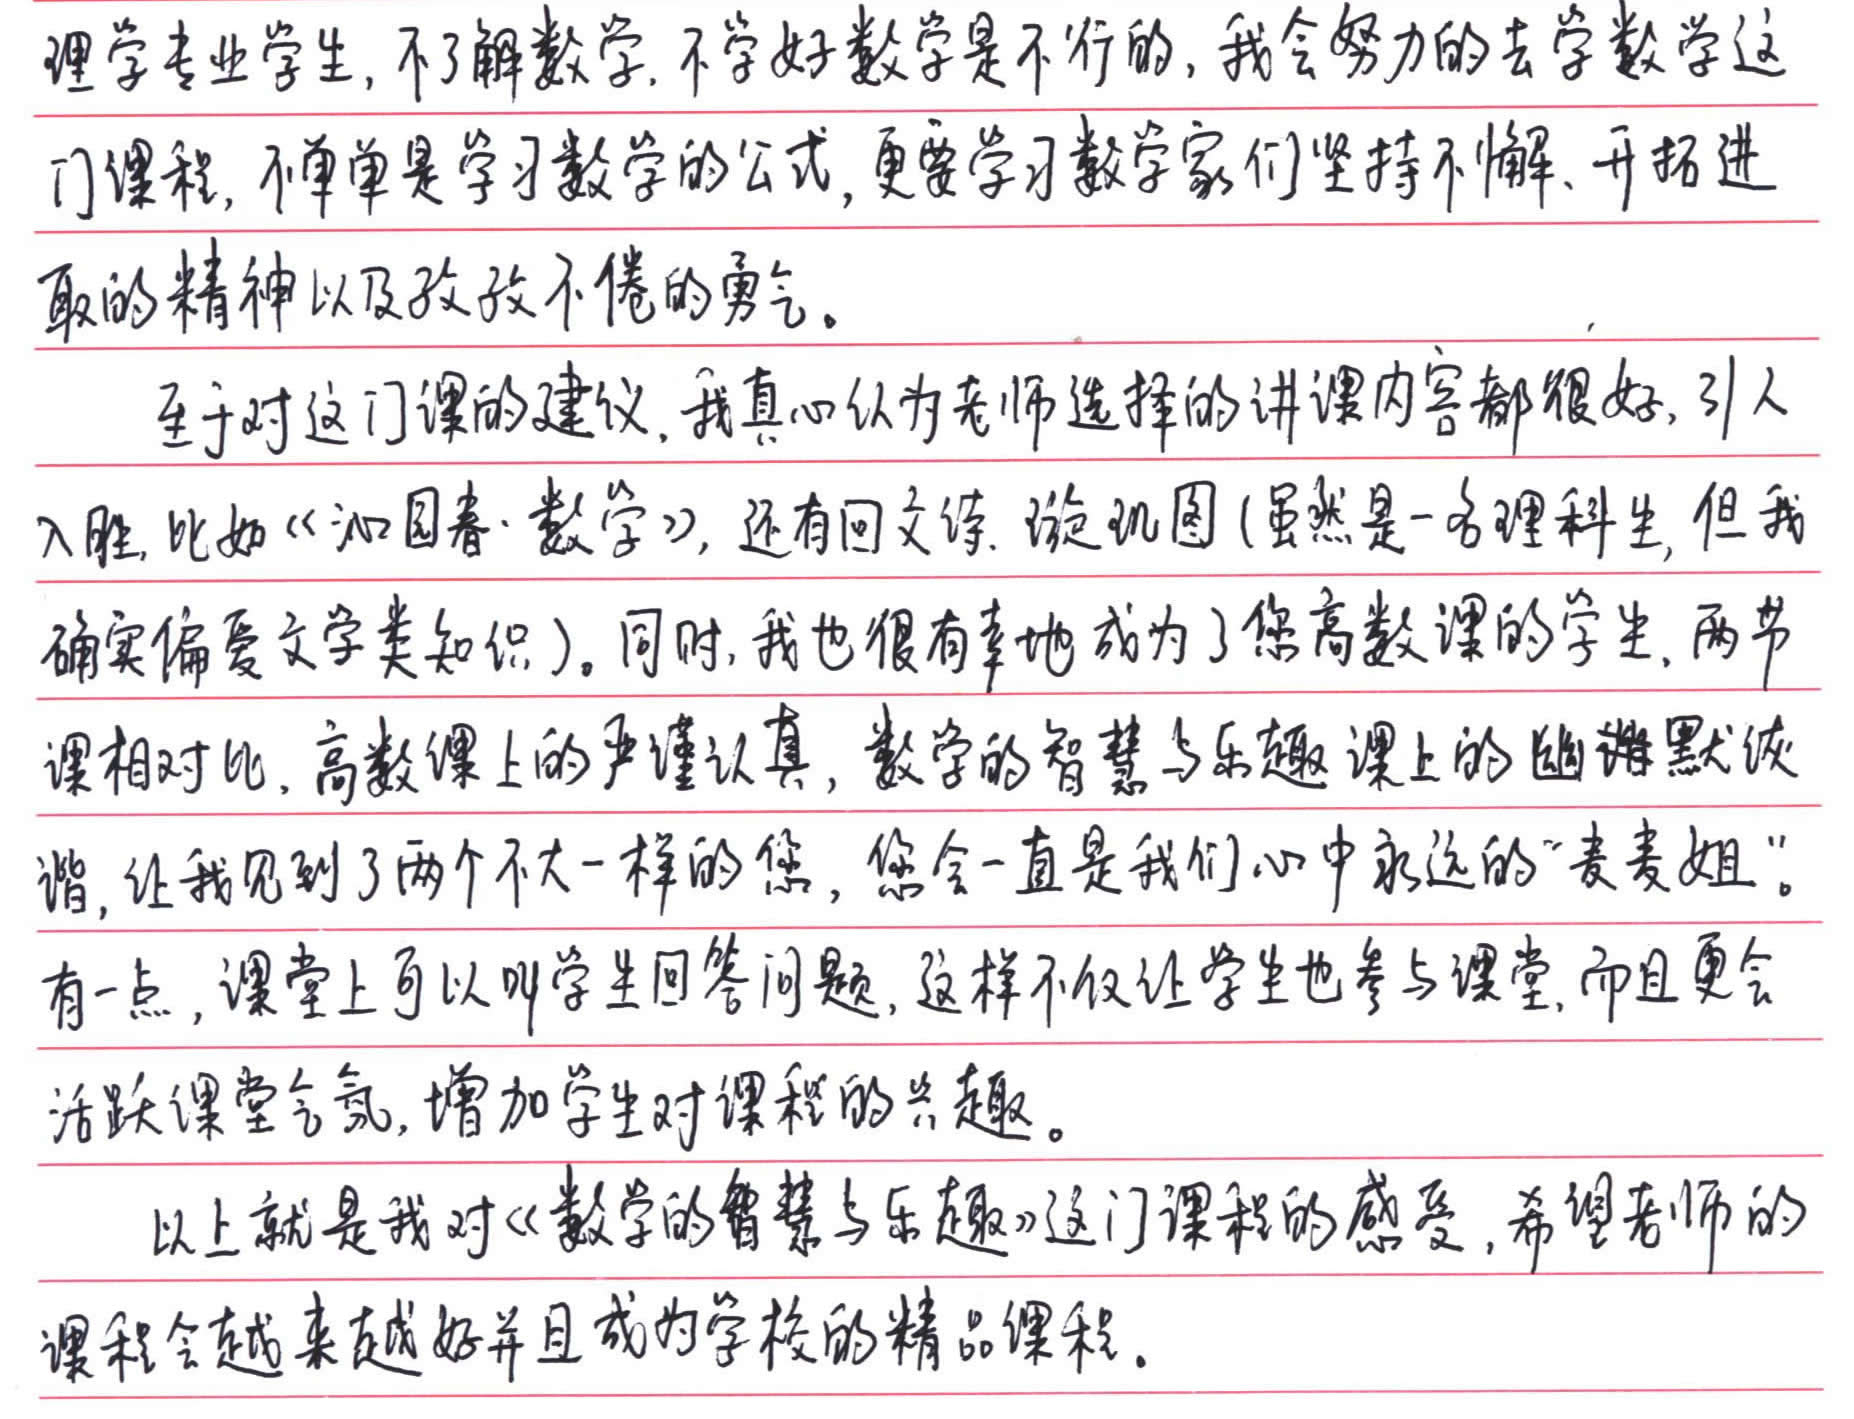 理学专业学生，不了解数学，不学好数学是不行的，我会努力的去学数学这
门课程，不单单是学习数学的公式，更要学习数学家们坚持不懈、开拓进
取的精神以及孜孜不倦的勇气。
至于对这门课的建议，我真心认为老师选择的讲课内容都很好，引人
入胜，比如《沁园春·数学》，还有回文诗、璇玑图（虽然是一名理科生，但我
确实偏爱文学类知识）。同时，我也很有幸地成为了您高数课的学生，两节
课相对比，高数课上的严谨认真，数学的智慧与乐趣课上的幽默诙
谐，让我见到了两个不大一样的您，您会一直是我们心中永远的“麦麦姐”。
有一点，课堂上可以叫学生回答问题，这样不仅让学生也参与课堂，而且更会
活跃课堂气氛，增加学生对课程的兴趣。
以上就是我对《数学的智慧与乐趣》这门课程的感受，希望老师的
课程会越来越好并且成为学校的精品课程。